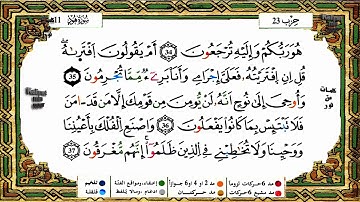 حزب 23
سورة هود 11
هُوَ رَبُّكُمْ وَإِلَيْهِ تُرْجَعُونَ 34 أَمْ يَقُولُونَ افْتَرَىٰهُ
قُلْ إِنِ افْتَرَيْتُهُ فَعَلَيَّ إِجْرَامِي وَأَنَا بَرِيءٌ مِّمَّا تُجْرِمُونَ 35
وَأُوحِيَ إِلَىٰ نُوحٍ أَنَّهُ لَن يُؤْمِنَ مِن قَوْمِكَ إِلَّا مَن قَدْ ءَامَنَ
فَلَا تَبْتَئِسْ بِمَا كَانُوا يَفْعَلُونَ 36 وَاصْنَعِ الْفُلْكَ بِأَعْيُنِنَا
وَوَحْيِنَا وَلَا تُخَاطِبْنِي فِي الَّذِينَ ظَلَمُوا إِنَّهُم مُّغْرَقُونَ 37
مد 6 حركات لزوما
مد 2 او 4 او 6 جوازا
إخفاء، ومواقع الغنة
تفخيم
مد مشبع 6 حركات
مد حركتان
ادغام، ومالا يلفظ
قلقلة